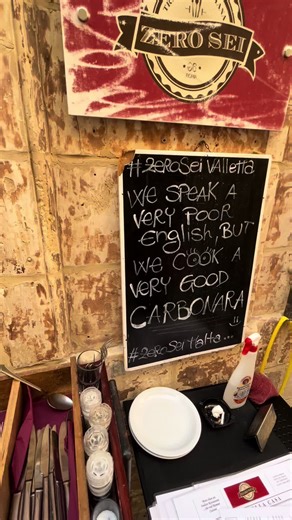 ZERO SEI
#ZEROSEI VALLETTA
WE SPEAK A
VERY POOR
ENGLISH, BUT
WE COOK A
VERY GOOD
CARBONARA
!!
#ZEROSEI MALTA...